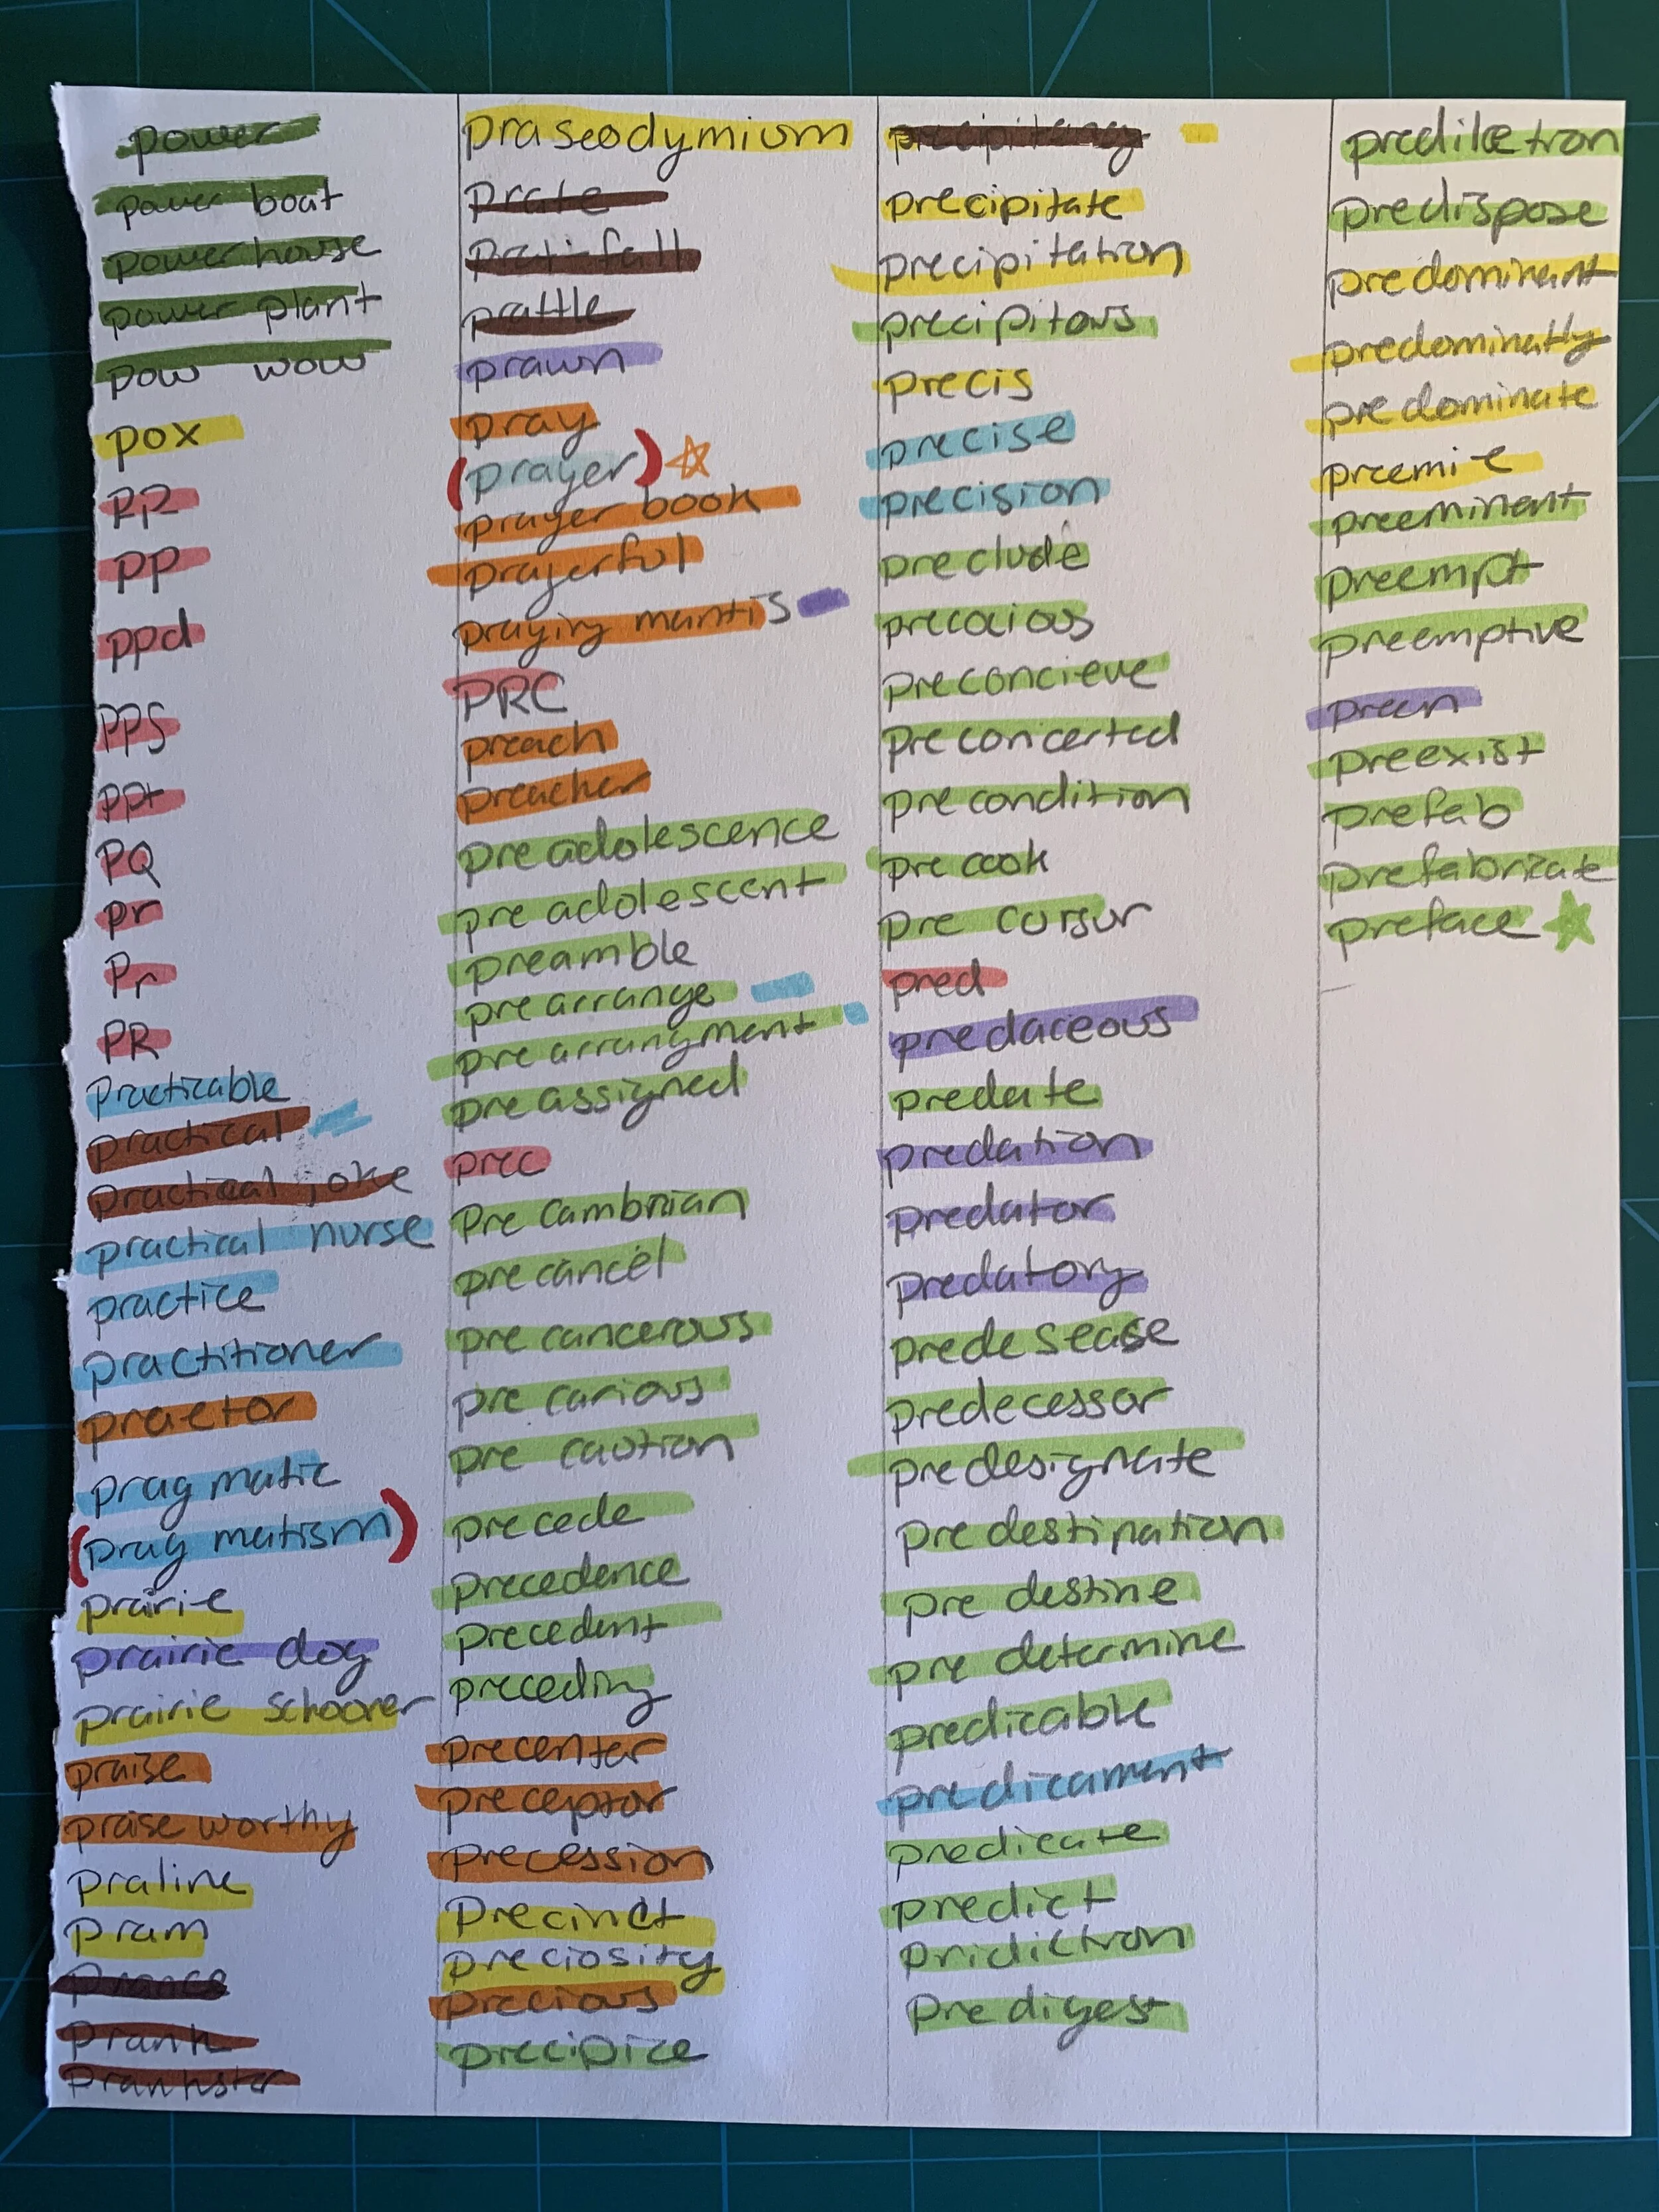 power
power boat
powerhouse
power plant
pow wow
pox
PP
pp
ppd
PPS
ppt
PQ
pr
Pr
PR
Practicable
practical
practical joke
practical nurse
practice
practitioner
praetor
pragmatic
(pragmatism)
prairie
prairie dog
prairie schooner
praise
praise worthy
praline
pram
prance
Prank
Prankster
praseodymium
Prate
Prat-fall
prattle
prawn
pray
(prayer)
prayer book
prayerful
praying mantis
PRC
preach
preacher
pre adolescence
pre adolescent
preamble
pre arrange
pre arrangment
pre assigned
prec
Pre cambrian
pre cancel
pre cancerous
pre carious
pre caution
precede
precedence
precedent
preceding
precenter
preceptor
precession
Precinct
preciosity
precious
precipice
precipitancy
precipitate
precipitation
precipitous
precis
precise
precision
preclude
precocious
preconcieve
preconcerted
precondition
pre cook
pre cursur
pred
predaceous
predate
predation
predator
predatory
predesease
predecessor
predesignate
predestination
pre destine
pre determine
predicable
predicament
predicate
predict
pridiction
Pre digest
predilection
predispose
predominant
predominatly
predominate
preemie
preeminent
preempt
preemptive
preen
preexist
prefab
prefabricate
preface